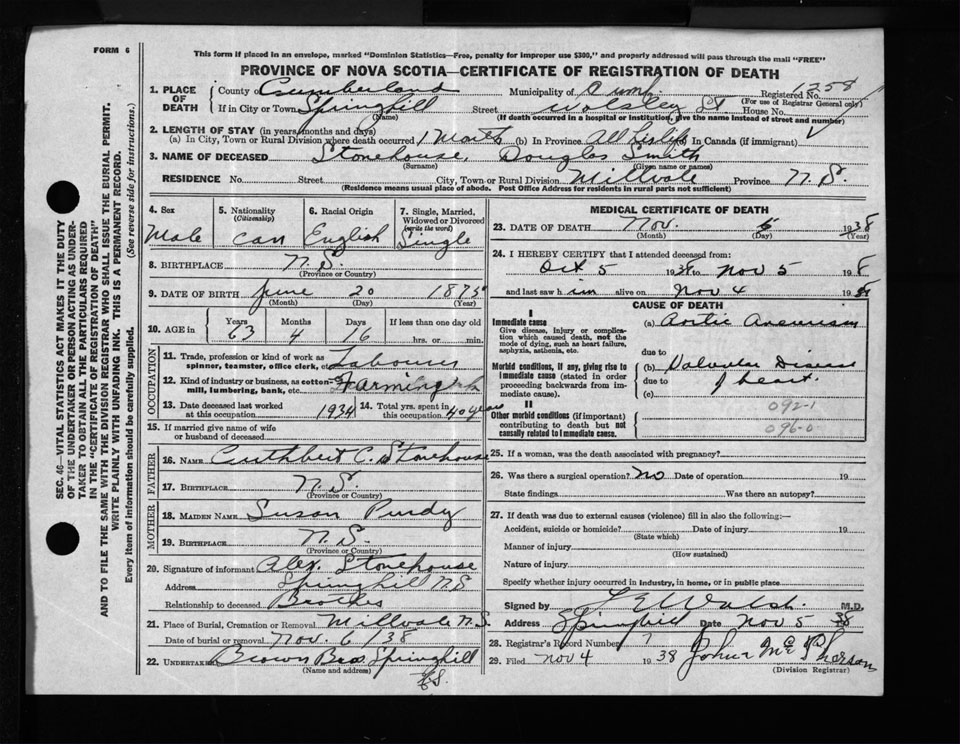 FORM 6
This form if placed in an envelope, marked "Dominion Statistics—Free, penalty for improper use $300," and properly addressed will pass through the mail "FREE"
PROVINCE OF NOVA SCOTIA—CERTIFICATE OF REGISTRATION OF DEATH
SEC. 46—VITAL STATISTICS ACT MAKES IT THE DUTY
OF THE UNDERTAKER OR PERSON ACTING AS UNDER-
TAKER TO OBTAIN ALL THE PARTICULARS REQUIRED
IN THE "CERTIFICATE OF REGISTRATION OF DEATH"
AND TO FILE THE SAME WITH THE DIVISION REGISTRAR WHO SHALL ISSUE THE BURIAL PERMIT.
WRITE PLAINLY WITH UNFADING INK. THIS IS A PERMANENT RECORD.
Every item of information should be carefully supplied. (See reverse side for instructions.)
1. PLACE OF DEATH County Cumberland Municipality of Cumb. Registered No. 1258
(For use of Registrar General only)
If in City or Town Springhill Street Wolsley St House No.
(Name) (If death occurred in a hospital or institution, give the name instead of street and number)
2. LENGTH OF STAY (in years, months and days)
(a) In City, Town or Rural Division where death occurred 1 Month (b) In Province All his life In Canada (if immigrant)
3. NAME OF DECEASED Stonehouse, Douglas Smith
(Surname) (Given name or names)
RESIDENCE No. Street City, Town or Rural Division Millvale Province N.S.
(Residence means usual place of abode. Post Office Address for residents in rural parts not sufficient)
4. Sex Male
5. Nationality (Citizenship) Can
6. Racial Origin English
7. Single, Married, Widowed or Divorced (write the word) Single
8. BIRTHPLACE N.S.
(Province or Country)
9. DATE OF BIRTH June 20 1875
(Month) (Day) (Year)
10. AGE in Years 63 Months 4 Days 16 If less than one day old hrs. or min.
OCCUPATION
11. Trade, profession or kind of work as spinner, teamster, office clerk, etc. Labourer
12. Kind of industry or business, as cotton-mill, lumbering, bank, etc. Farming
13. Date deceased last worked at this occupation 1934
14. Total yrs. spent in this occupation 40 years
15. If married give name of wife or husband of deceased
FATHER
16. NAME Cuthbert C. Stonehouse
17. BIRTHPLACE N.S.
(Province or Country)
MOTHER
18. MAIDEN NAME Susan Purdy
19. BIRTHPLACE N.S.
(Province or Country)
20. Signature of informant Alex. Stonehouse
Address Springhill N.S
Relationship to deceased Brother
21. Place of Burial, Cremation or Removal Millvale N.S.
Date of burial or removal Nov. 6 /38
22. UNDERTAKER Brown Bros Springhill
(Name and address) N.S.
MEDICAL CERTIFICATE OF DEATH
23. DATE OF DEATH Nov. 5 1938
(Month) (Day) (Year)
24. I HEREBY CERTIFY that I attended deceased from:
Oct 5 1938 to Nov 5 1938
and last saw him alive on Nov 4 1938
CAUSE OF DEATH
I
Immediate cause (a) Aortic Aneurism
Give disease, injury or complication which caused death, not the mode of dying, such as heart failure, asphyxia, asthenia, etc.
due to
Morbid conditions, if any, giving rise to immediate cause (stated in order proceeding backwards from immediate cause). (b) Valvular Disease
due to of heart.
(c)
II
Other morbid conditions (if important) contributing to death but not causally related to immediate cause.
092-1
096-0
25. If a woman, was the death associated with pregnancy?
26. Was there a surgical operation? No Date of operation 19
State findings Was there an autopsy?
27. If death was due to external causes (violence) fill in also the following:—
Accident, suicide or homicide? Date of injury 19
(State which)
Manner of injury
(How sustained)
Nature of injury
Specify whether injury occurred in industry, in home, or in public place
Signed by E Walsh. M.D.
Address Springhill Date Nov 5 38
28. Registrar's Record Number 7
29. Filed Nov 4 1938 John McPherson
(Division Registrar)